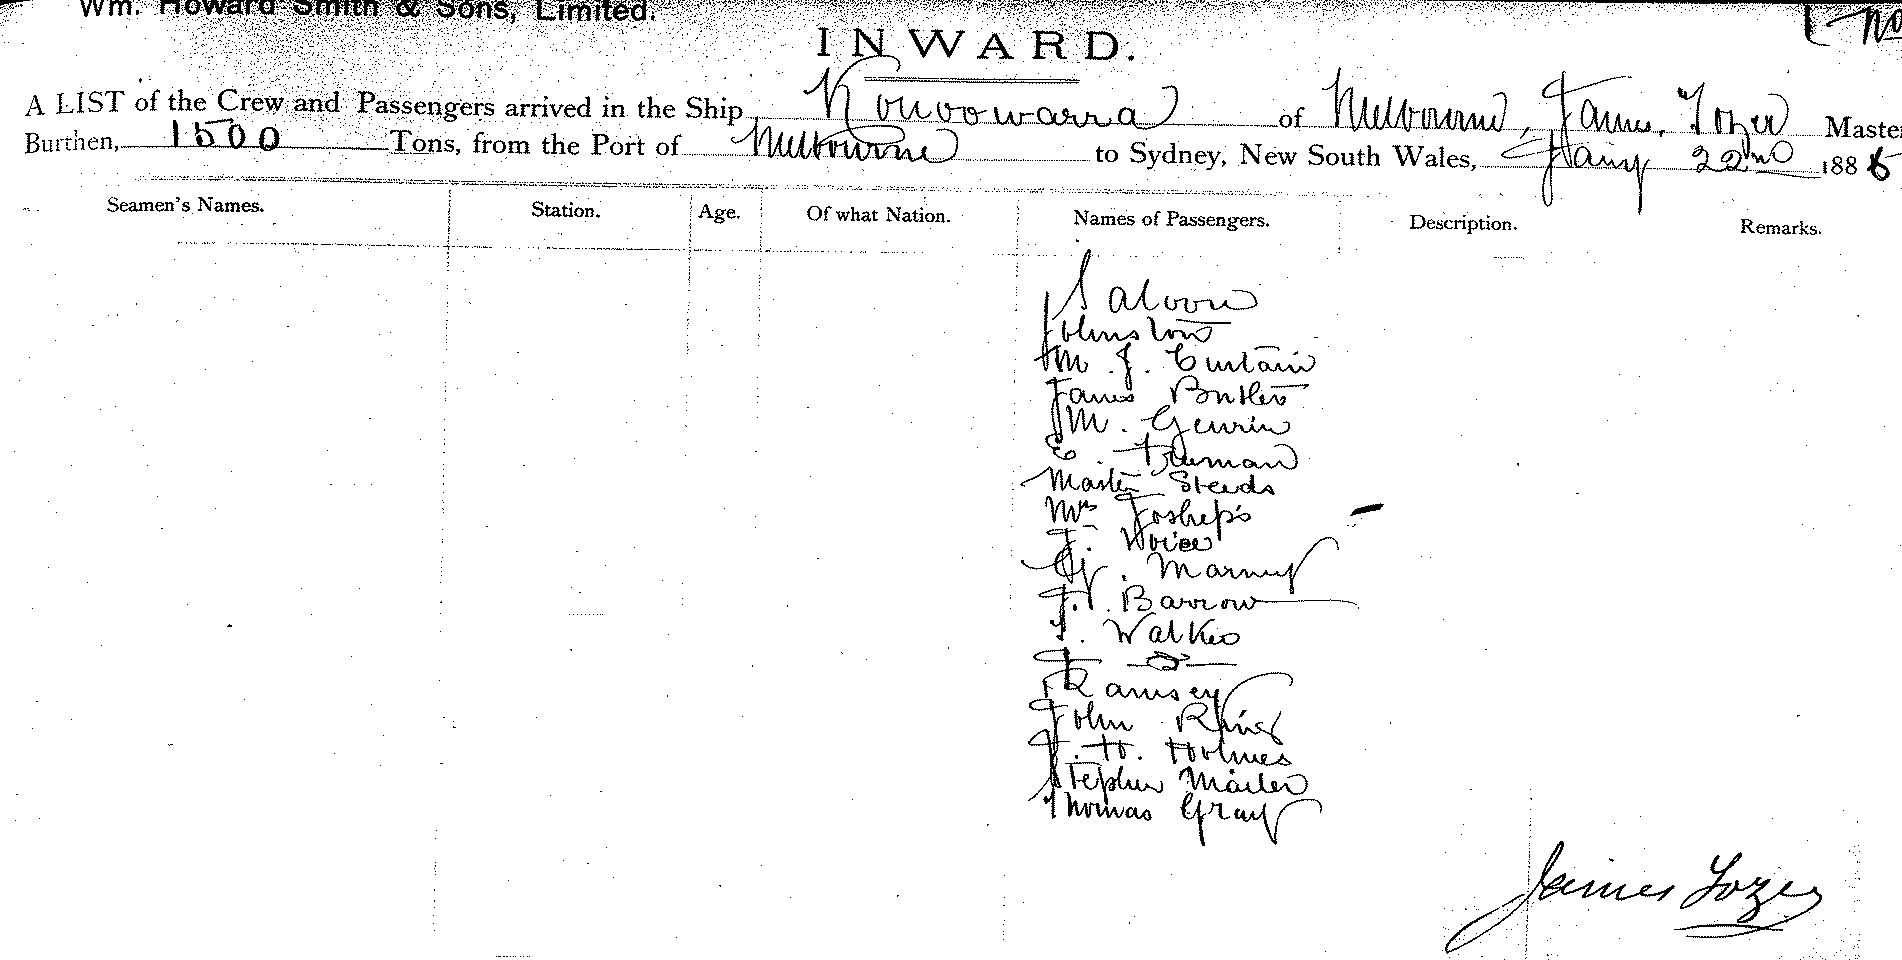 Wm. Howard Smith & Sons, Limited.
No
INWARD.
A LIST of the Crew and Passengers arrived in the Ship Konoowarra of Melbourne, James Tozer Master
Burthen, 1500 Tons, from the Port of Melbourne to Sydney, New South Wales, Jany 22nd 1886
Seamen's Names. Station. Age. Of what Nation. Names of Passengers. Description. Remarks.
Saloon
Johnston
M. J. Curtain
James Butler
M.
E. Truman
Master Steeds
Mrs Josheps
J. Voice
Marney
J. Barrow
T. Walker
Ramsey
John King
J. H. Holmes
Stephen Mailer
Thomas Gray
James Tozer